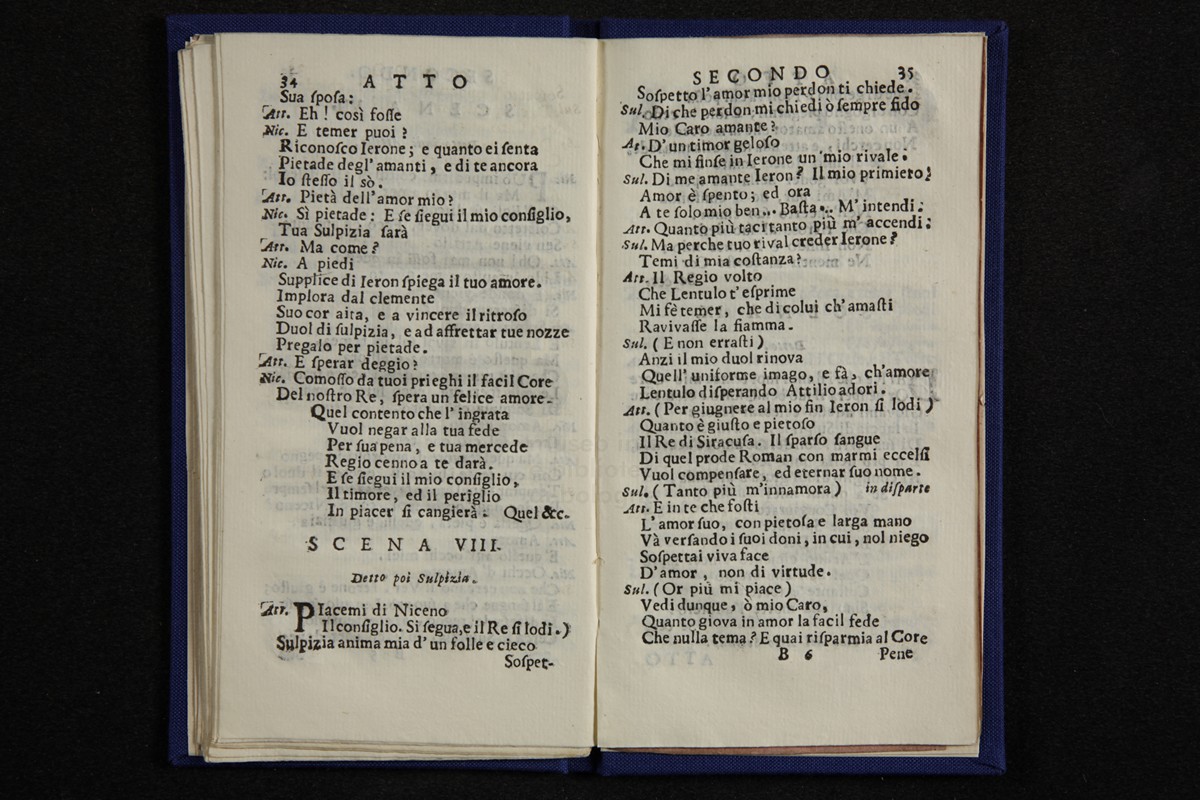 34 ATTO
Sua ſpoſa:
Att. Eh! così foſſe
Nic. E temer puoi?
Riconoſco Ierone; e quanto ei ſenta
Pietade degl' amanti, e di te ancora
Io ſteſſo il sò.
Att. Pietà dell'amor mio?
Nic. Sì pietade: E ſe ſiegui il mio conſiglio,
Tua Sulpizia ſarà
Att. Ma come?
Nic. A piedi
Supplice di Ieron ſpiega il tuo amore.
Implora dal clemente
Suo cor aita, e a vincere il ritroſo
Duol di ſulpizia, e ad affrettar tue nozze
Pregalo per pietade.
Att. E ſperar deggio?
Nic. Comoſſo da tuoi prieghi il facil Core
Del noſtro Re, ſpera un felice amore.
Quel contento che l' ingrata
Vuol negar alla tua fede
Per ſua pena, e tua mercede
Regio cenno a te darà.
E ſe ſiegui il mio conſiglio,
Il timore, ed il periglio
In piacer ſi cangierà. Quel &c.
SCENA VIII.
Detto poi Sulpizia.
Att. PIacemi di Niceno
Il conſiglio. Si ſegua, e il Re ſi lodi.)
Sulpizia anima mia d' un folle e cieco
Soſpet-
SECONDO 35
Soſpetto l'amor mio perdon ti chiede.
Sul. Di che perdon mi chiedi ò ſempre fido
Mio Caro amante?
At. D' un timor geloſo
Che mi finſe in Ierone un mio rivale.
Sul. Di me amante Ieron? Il mio primiero!
Amor è ſpento; ed ora
A te ſolo mio ben... Baſta... M' intendi:
Att. Quanto più taci tanto più m' accendi:
Sul. Ma perche tuo rival creder Ierone?
Temi di mia coſtanza?
Att. Il Regio volto
Che Lentulo t' eſprime
Mi fè temer, che di colui ch' amaſti
Ravivaſſe la fiamma.
Sul. (E non erraſti)
Anzi il mio duol rinova
Quell' uniforme imago, e fà, ch'amore
Lentulo diſperando Attilio adori.
Att. (Per giugnere al mio fin Ieron ſi lodi)
Quanto è giuſto e pietoſo
Il Re di Siracuſa. Il ſparſo ſangue
Di quel prode Roman con marmi eccelſi
Vuol compenſare, ed eternar ſuo nome.
Sul. (Tanto più m'innamora) in diſparte
Att. E in te che foſti
L' amor ſuo, con pietoſa e larga mano
Và verſando i ſuoi doni, in cui, nol niego
Soſpettai viva face
D' amor, non di virtude.
Sul. (Or più mi piace)
Vedi dunque, ò mio Caro,
Quanto giova in amor la facil fede
Che nulla tema? E quai riſparmia al Core
B 6 Pene